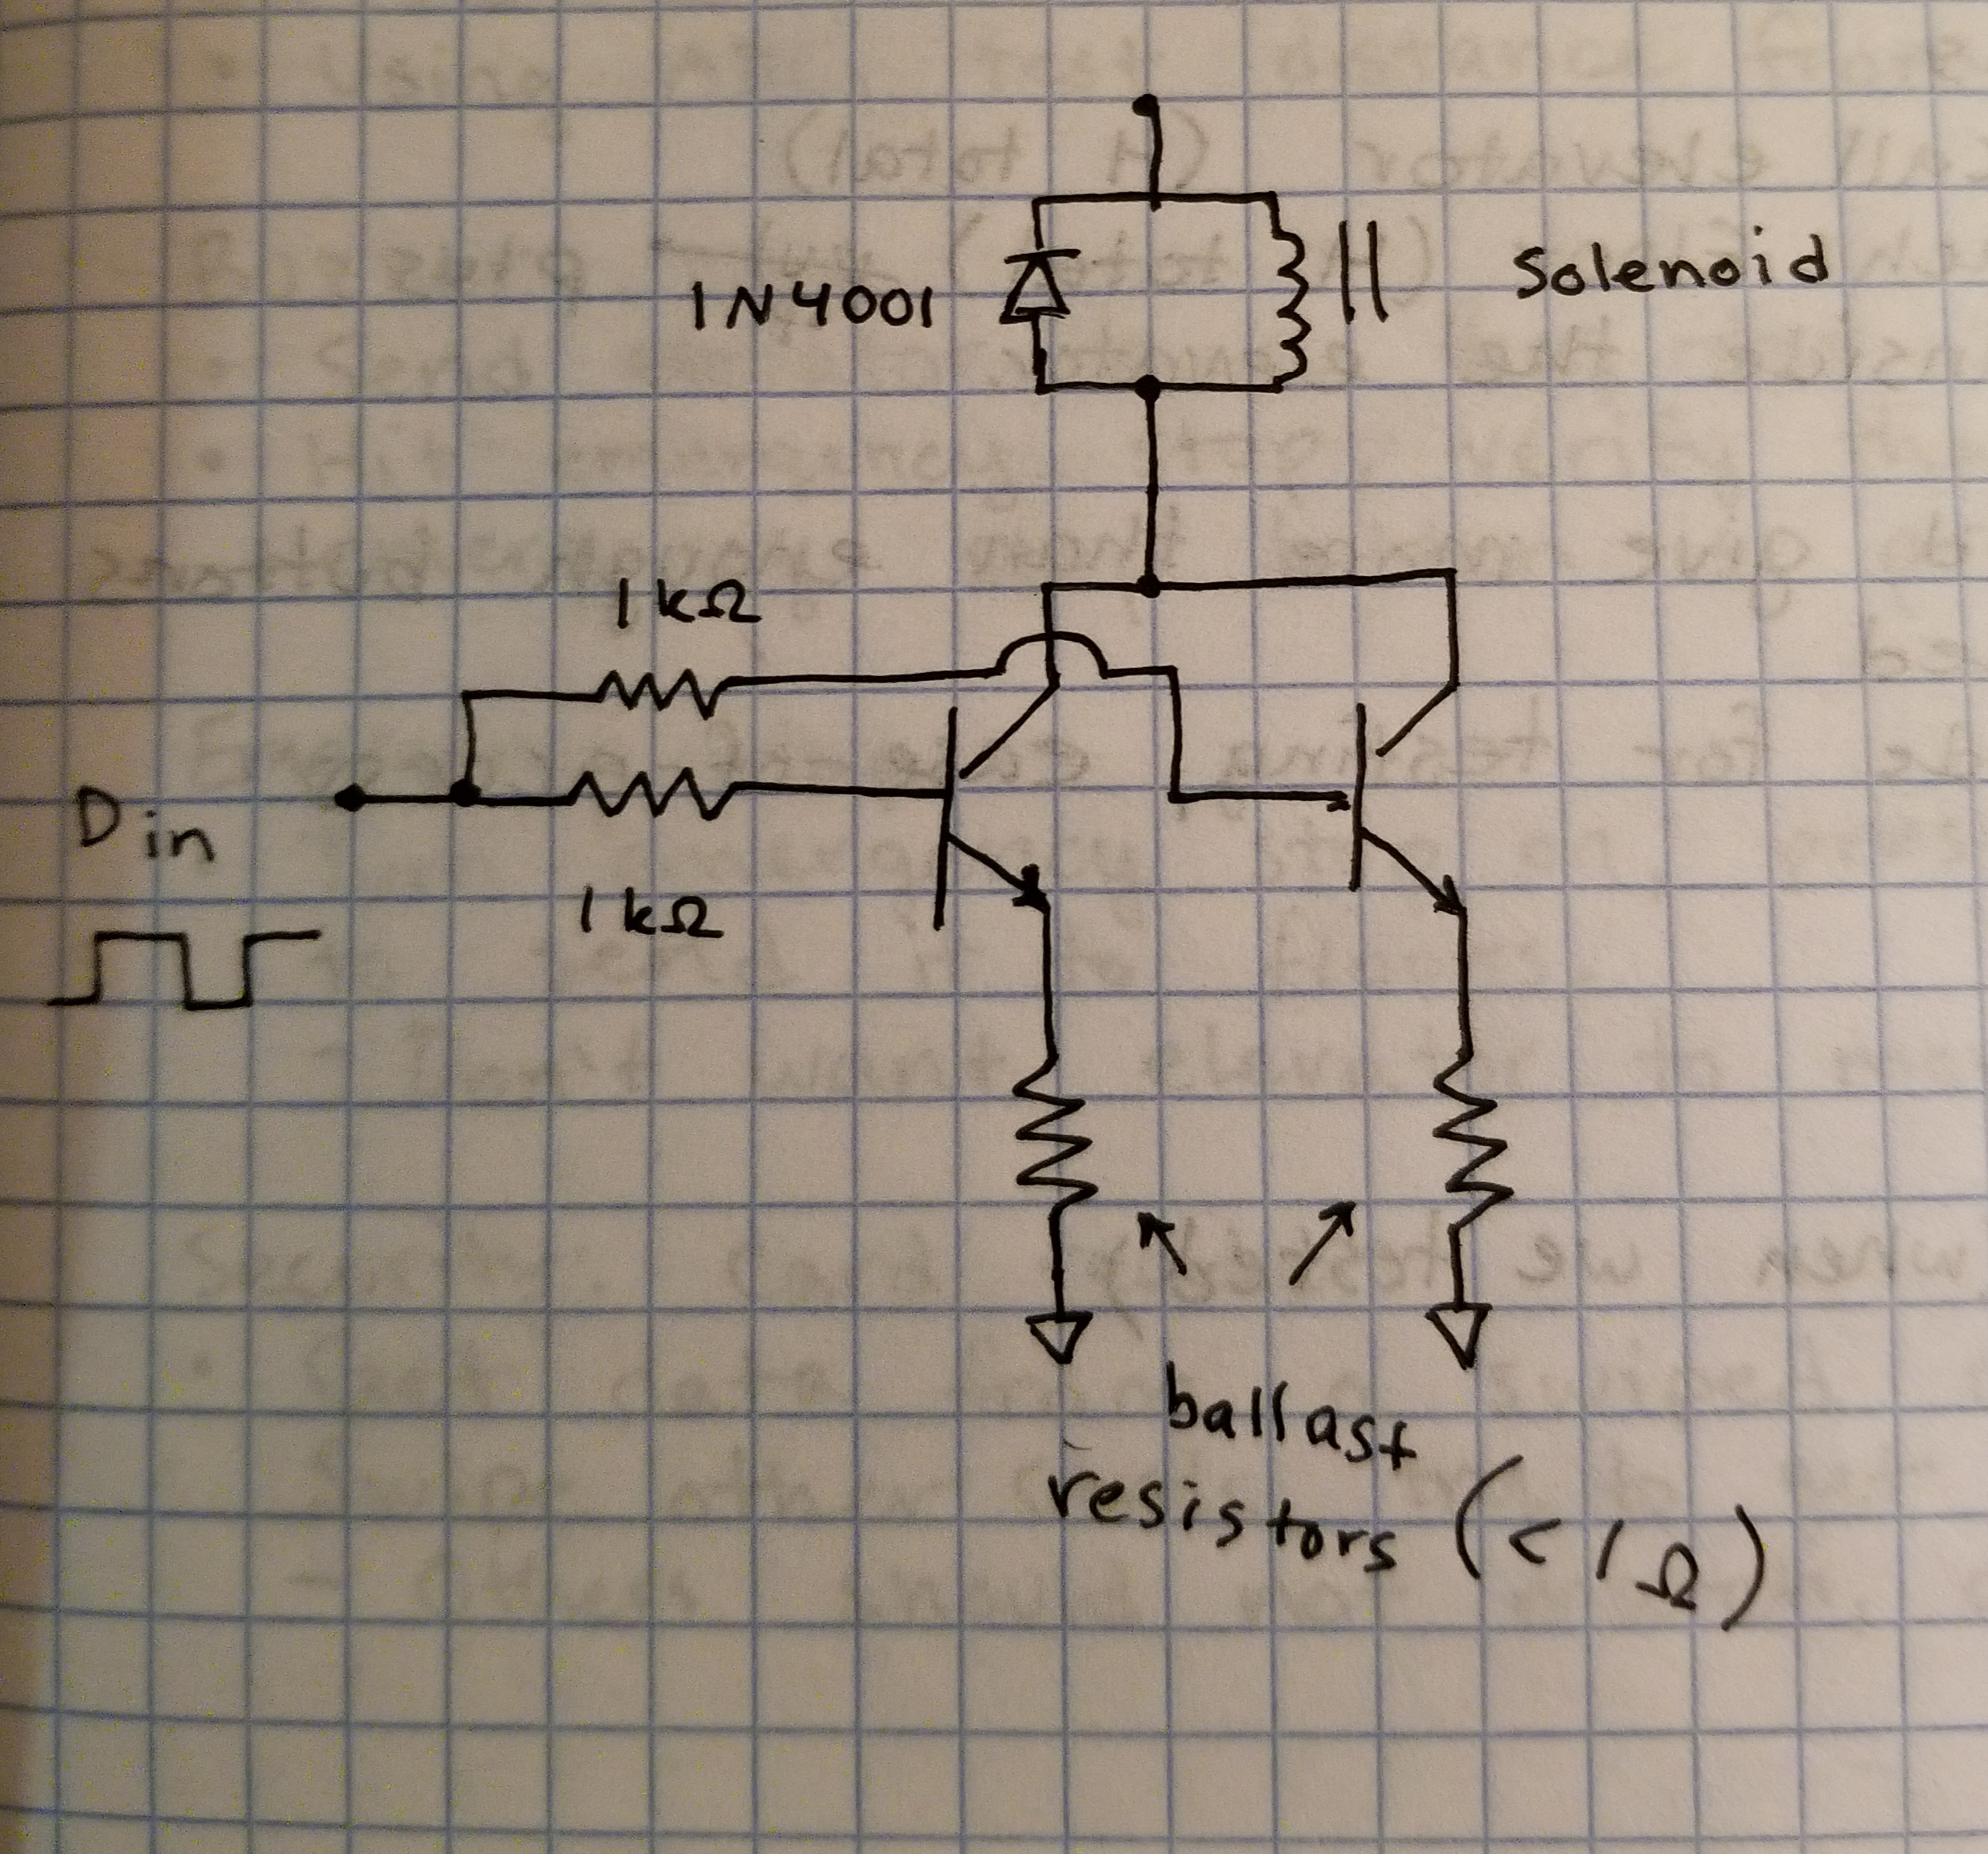 1N4001
Solenoid
1kΩ
Din
1kΩ
ballast
resistors (<1Ω)